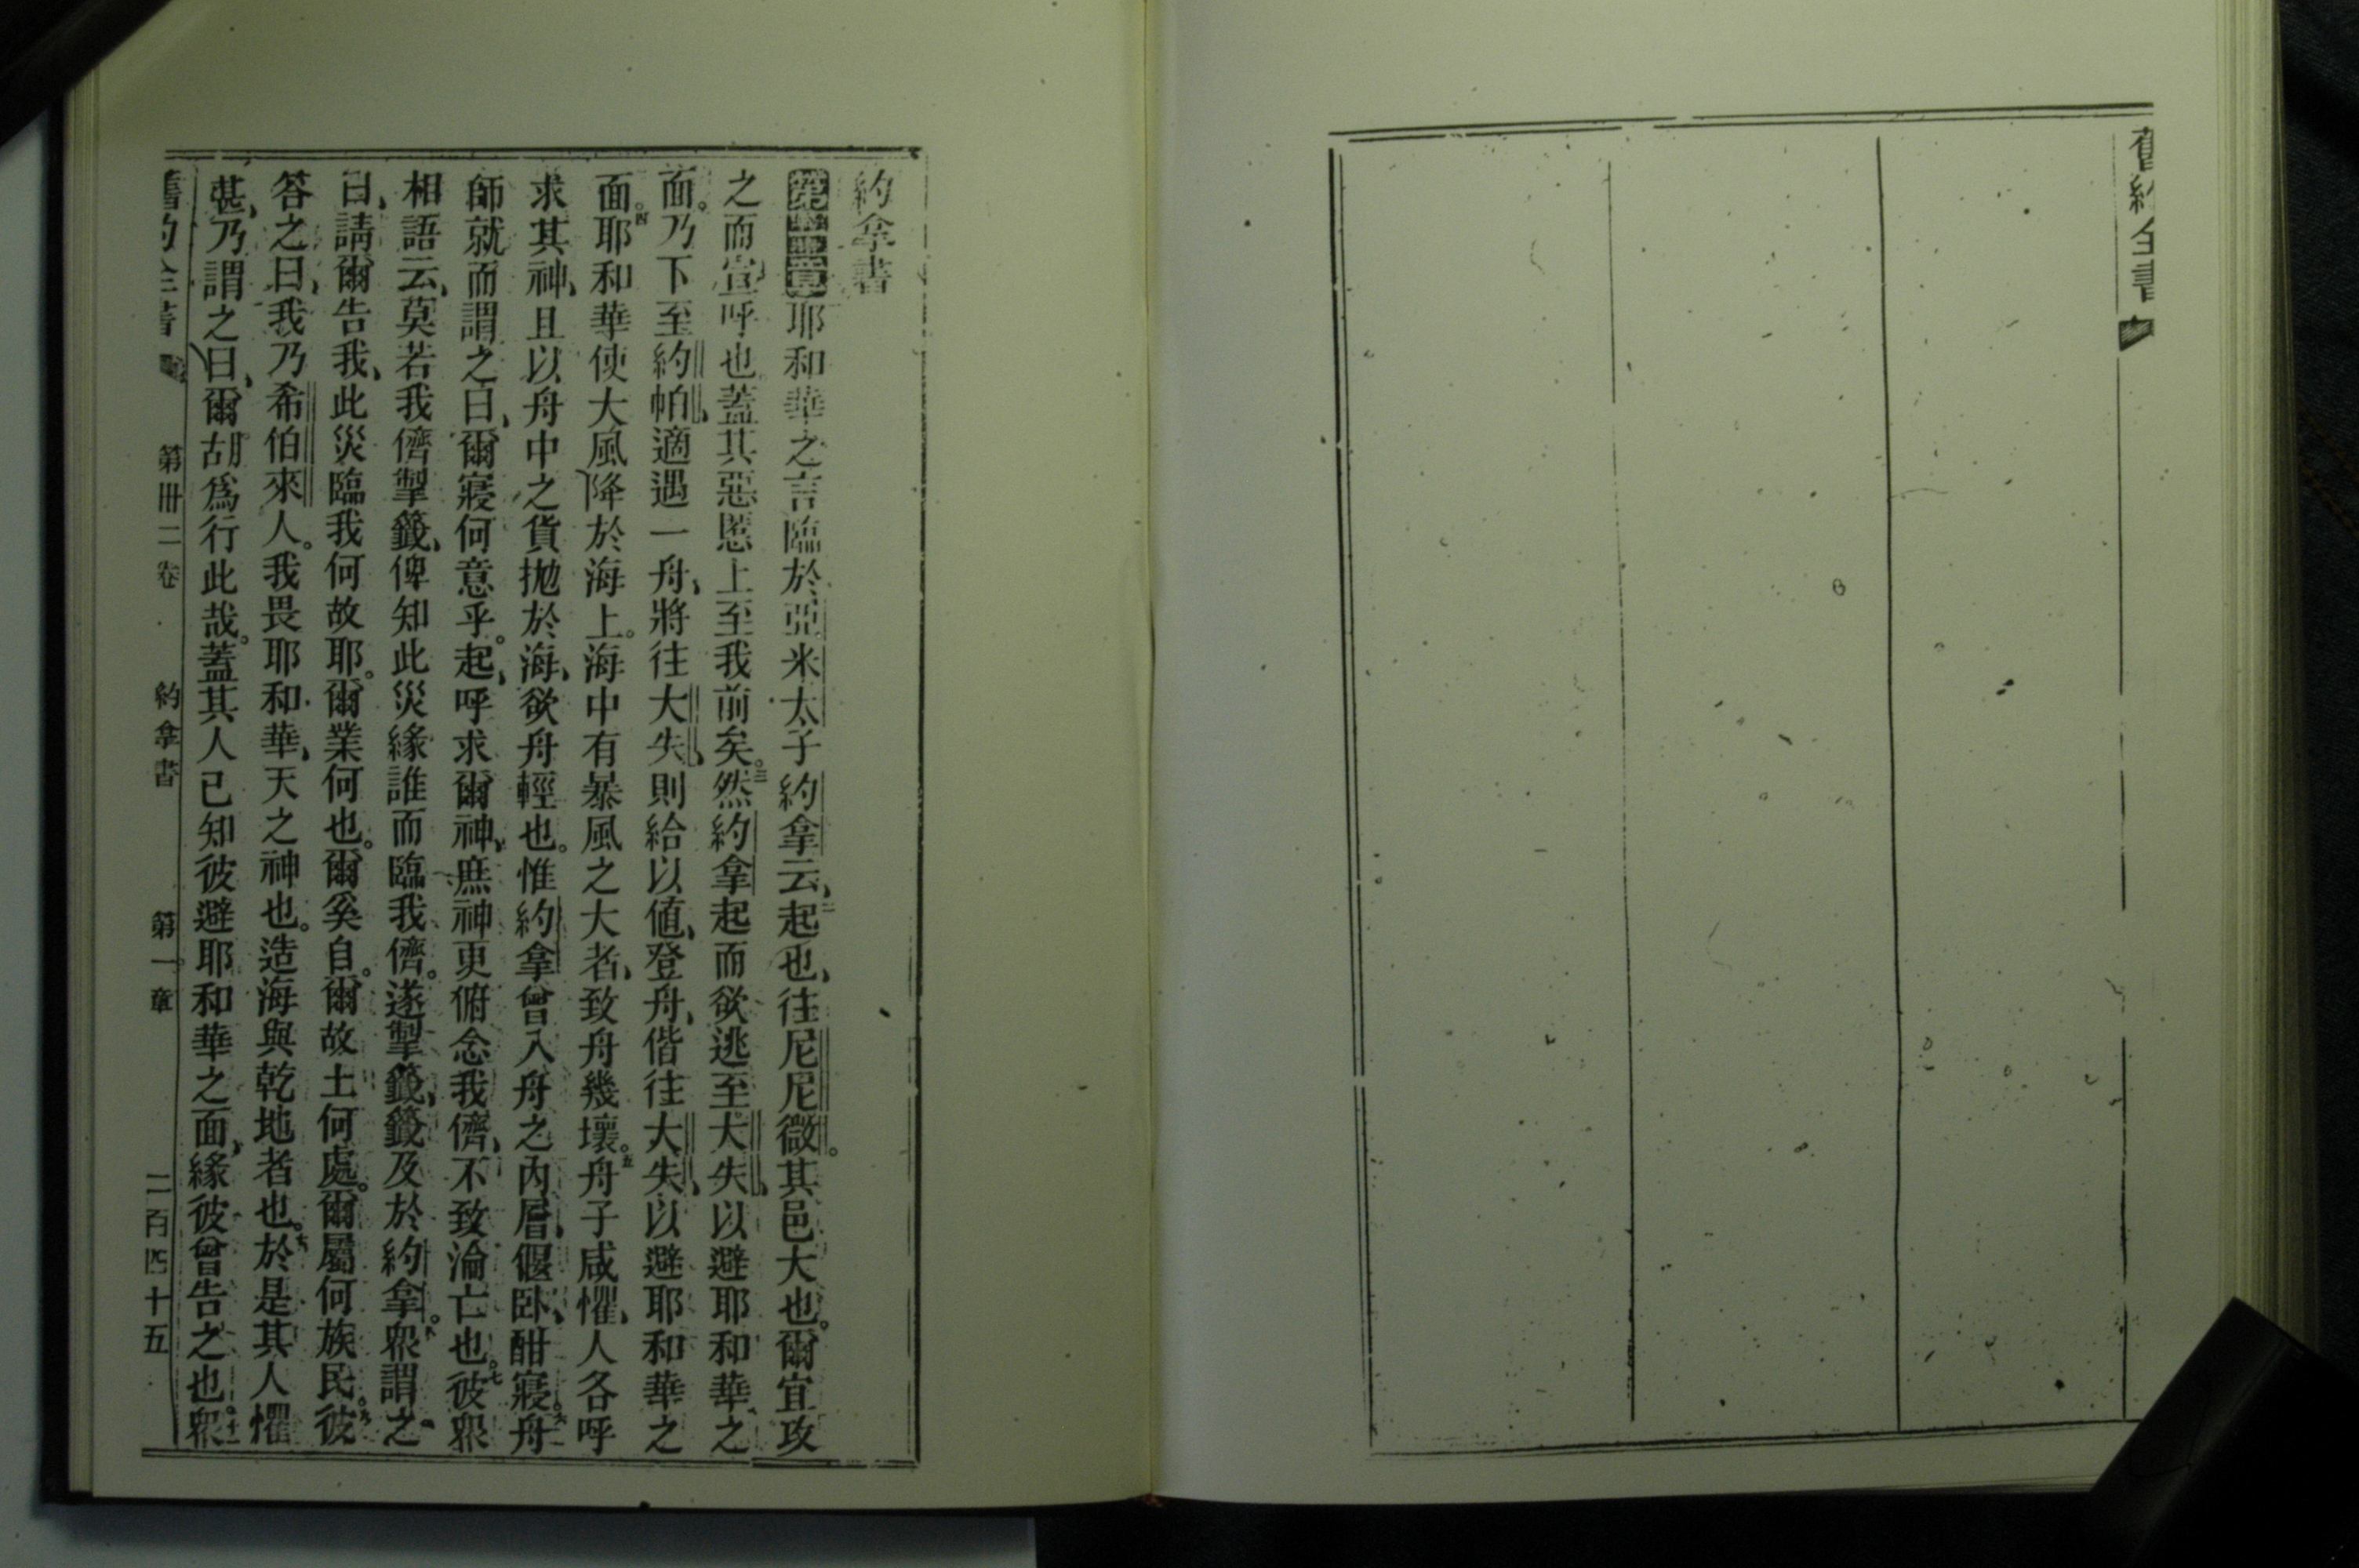 舊約全書
約拿書
第一章耶和華之言臨於亞米太子約拿云、二起也、往尼尼微。其邑大也。爾宜攻
之而宣呼也蓋其惡慝上至我前矣。三然約拿起而欲逃至大失、以避耶和華之
面。乃下至約帕、適遇一舟、將往大失、則給以値、登舟、偕往大失、以避耶和華之
面。四耶和華使大風降於海上。海中有暴風之大者、致舟幾壞。五舟子咸懼、人各呼
求其神、且以舟中之貨拋於海、欲舟輕也。惟約拿曾入舟之內層、偃卧、酣寢。六舟
師就而謂之曰、爾寢何意乎。起、呼求爾神、庶神更俯念我儕、不致淪亡也。七彼眾
相語云、莫若我儕掣籤、俾知此災緣誰而臨我儕。遂掣籤、籤及於約拿。八眾謂之
曰、請爾告我、此災臨我何故耶。爾業何也。爾奚自。爾故土何處。爾屬何族民。九彼
答之曰、我乃希伯來人。我畏耶和華、天之神也。造海與乾地者也。十於是其人懼
甚、乃謂之曰、爾胡爲行此哉。蓋其人已知彼避耶和華之面、緣彼曾告之也。十一眾
舊約全書 第卅二卷 約拿書 第一章 二百四十五